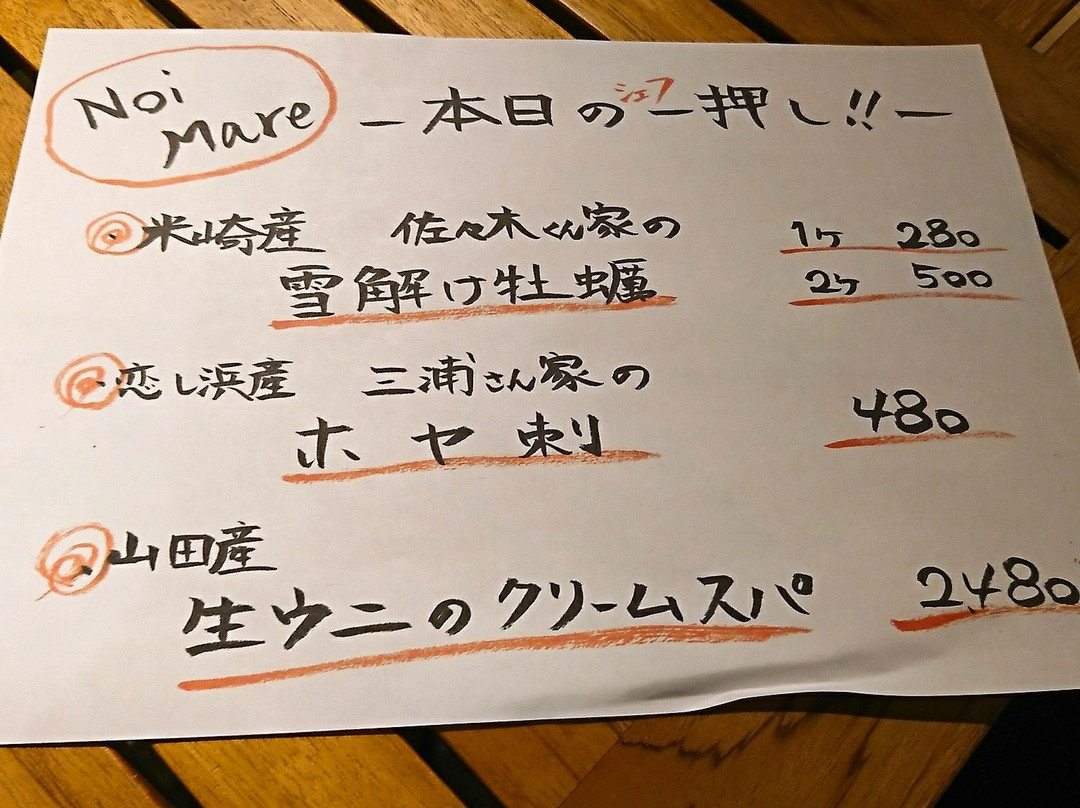 Noi
Mare
ー本日の一押し!!ー
シェフ
米崎産 佐々木くん家の
雪解け牡蠣
1ケ 280
2ケ 500
恋し浜産 三浦さん家の
ホヤ刺
480
山田産
生ウニのクリームスパ
2,480